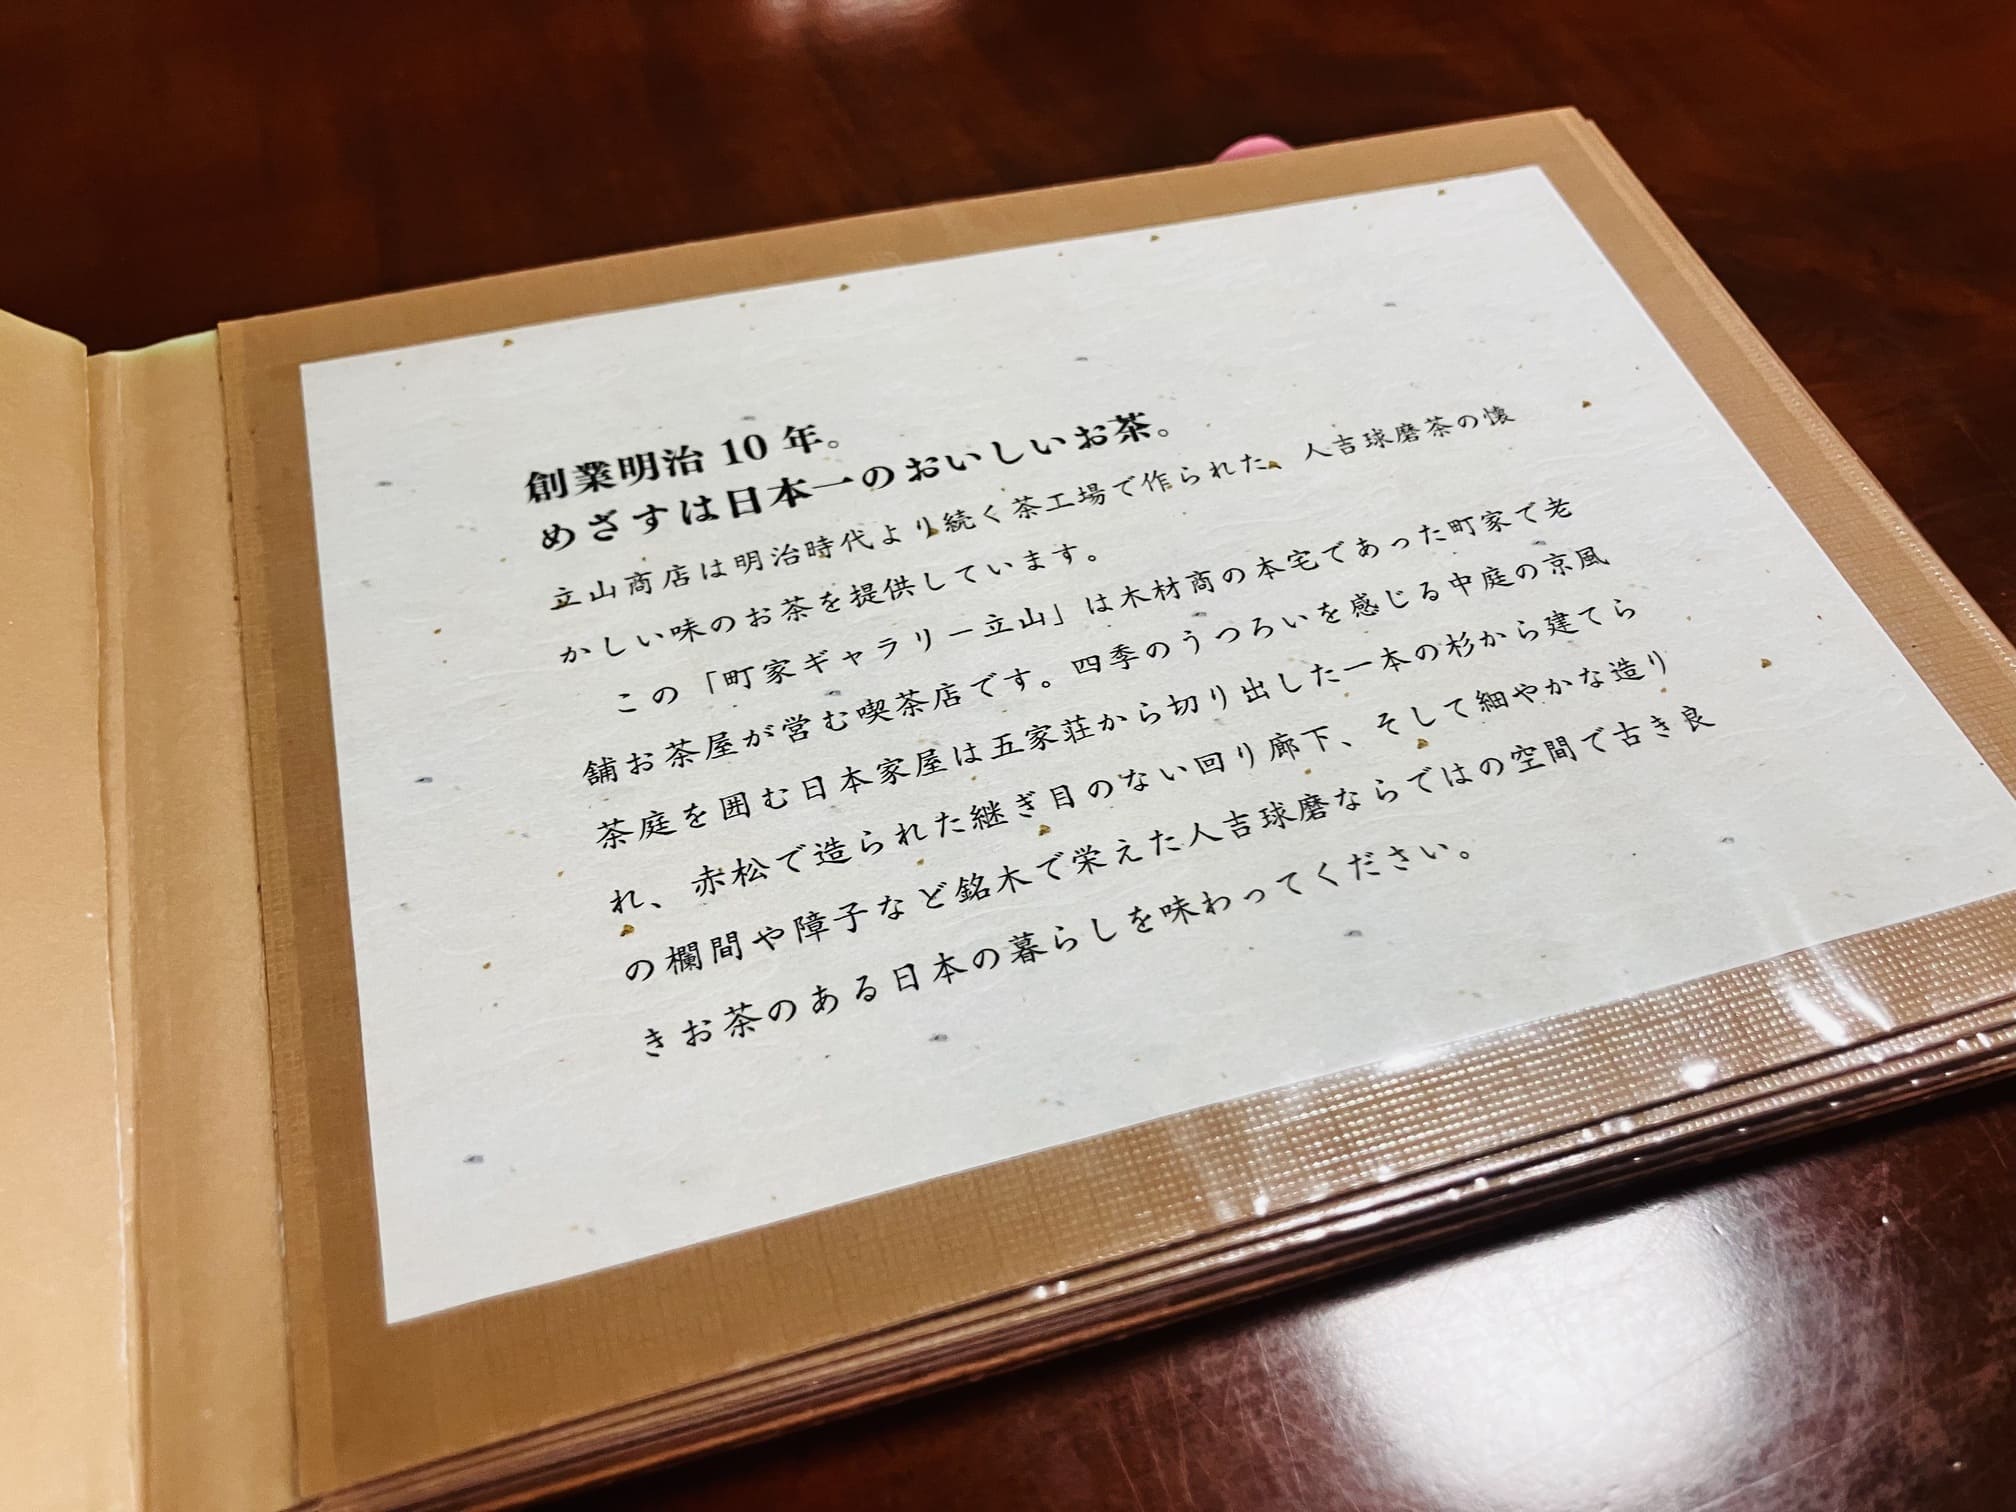 創業明治10年。
めざすは日本一のおいしいお茶。
立山商店は明治時代より続く茶工場で作られた、人吉球磨茶の懐
かしい味のお茶を提供しています。
この「町家ギャラリー立山」は木材商の本宅であった町家で老
舗お茶屋が営む喫茶店です。四季のうつろいを感じる中庭の京風
茶庭を囲む日本家屋は五家荘から切り出した一本の杉から建てら
れ、赤松で造られた継ぎ目のない回り廊下、そして細やかな造り
の欄間や障子など銘木で栄えた人吉球磨ならではの空間で古き良
きお茶のある日本の暮らしを味わってください。